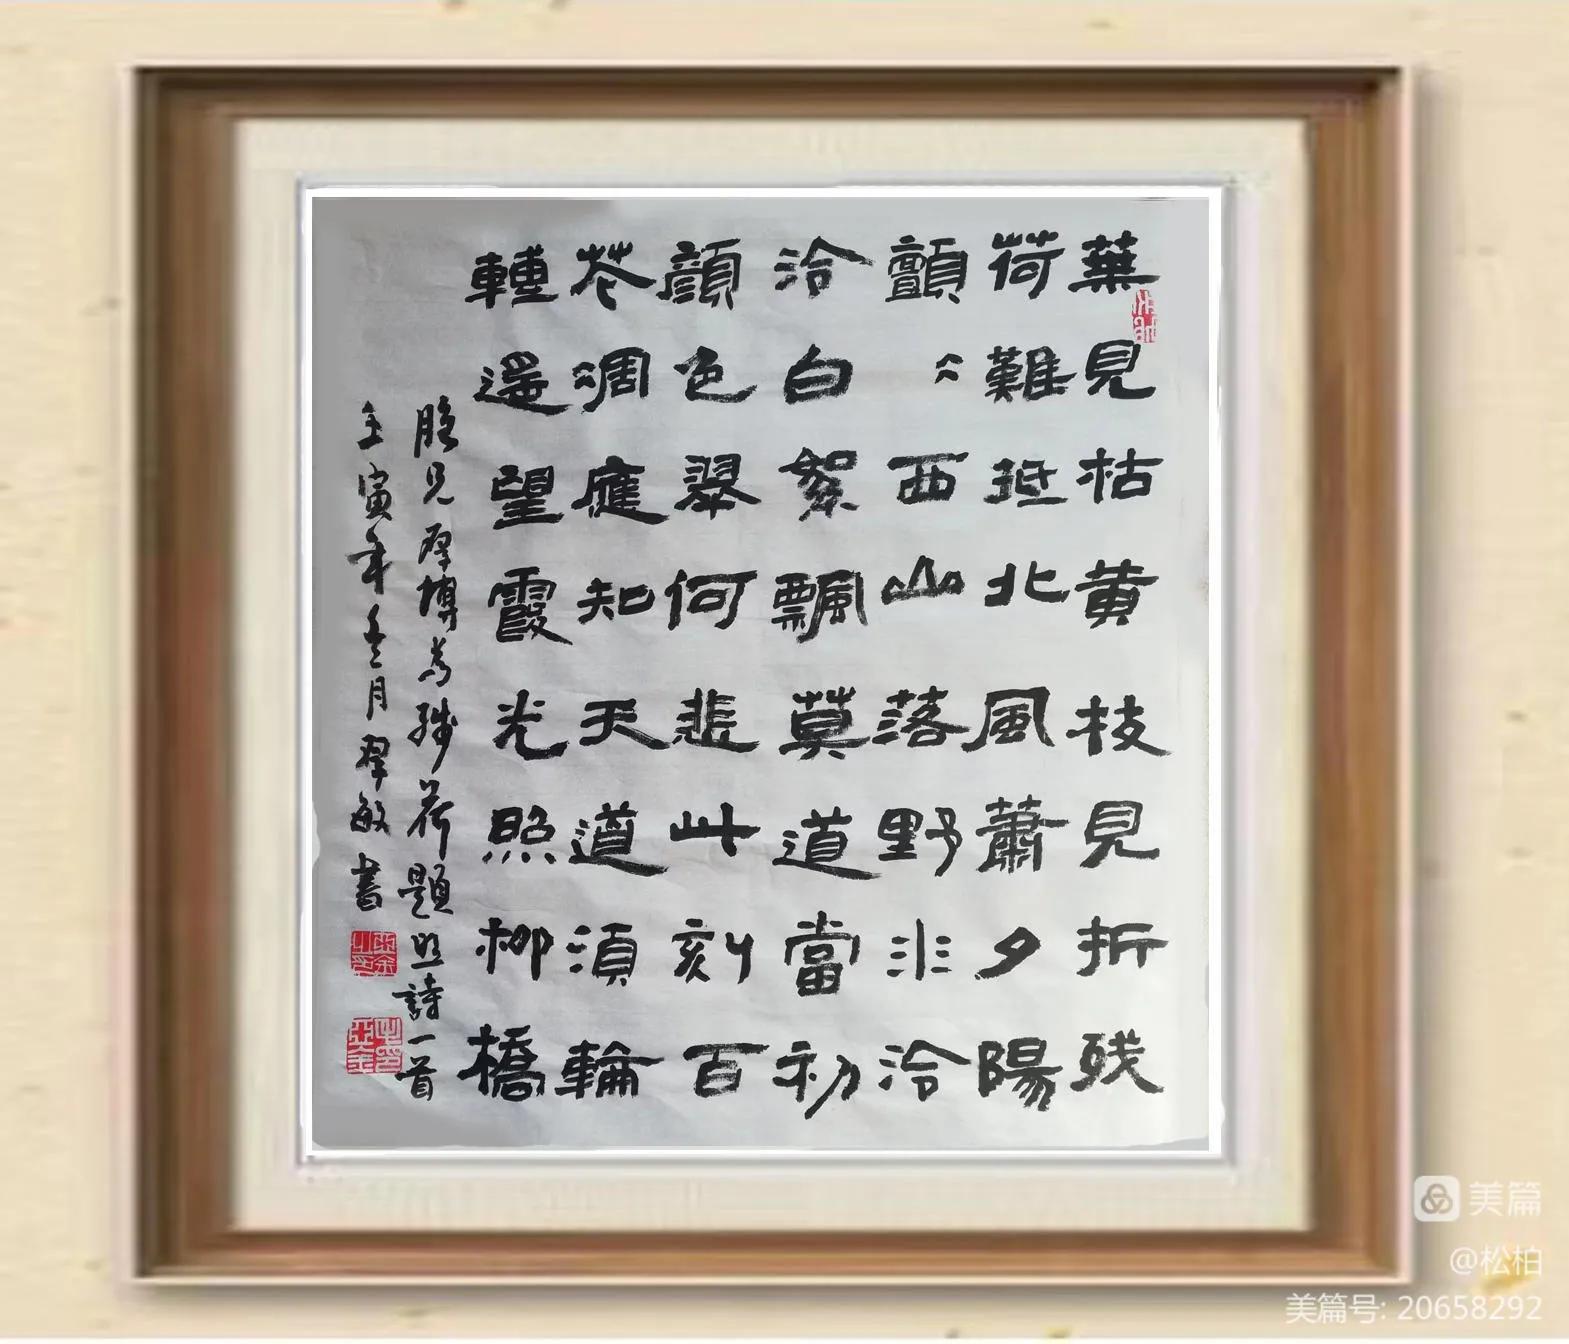 葉見枯黄枝見折残
荷難抵北風蕭夕陽
顫〻西山落野非泠
泠白絮飄莫道當初
顔色翠何悲此刻百
花凋應知天道須輪
轉遥望霞光照柳橋
勝兄群博為残荷題照詩一首
壬寅年冬月群敏書
美篇
@松柏
美篇号: 20658292